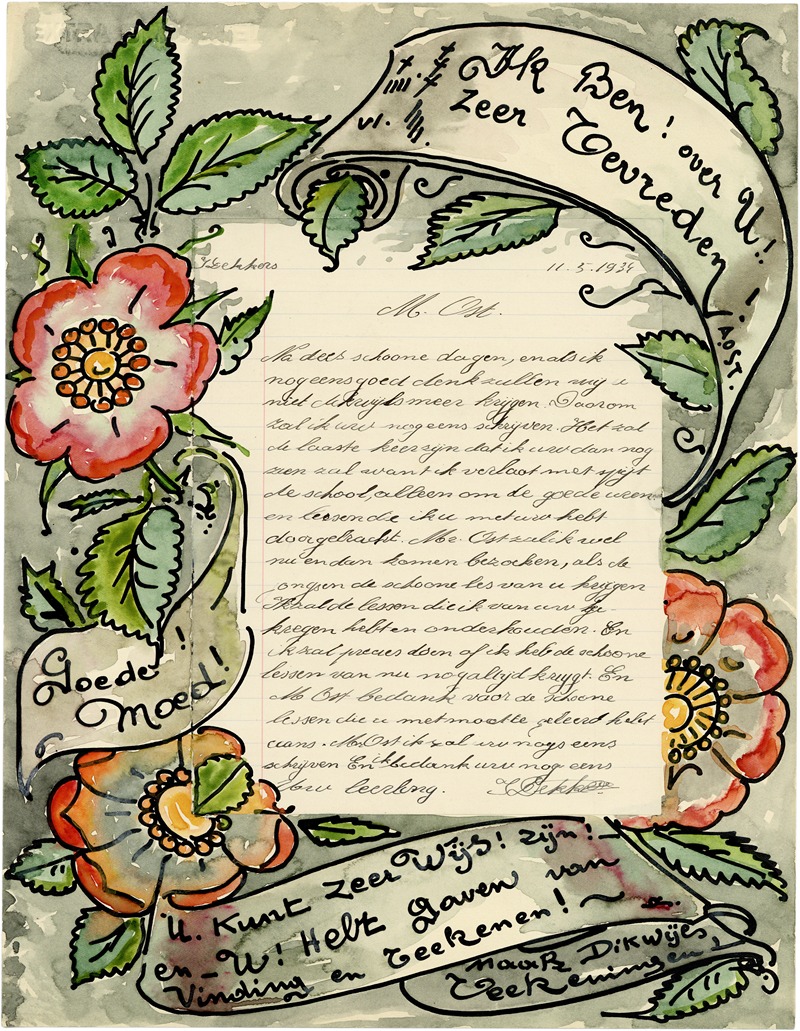 Ik Ben! over U!!
Zeer Tevreden!
VI.
A.OST.
11.5.1934
M. Ost.
Na dees schoone dagen, en als ik
nog eens goed denk zullen wij u
niet dikwijls meer krijgen. Daarom
zal ik uw nog eens schrijven. Het zal
de laaste keer zijn dat ik uw dan nog
zien zal want ik verlaat met spijt
de school, alleen om de goede uren
en lessen die ik u met uw hebt
doorgebracht. Mr. Ost zal ik wel
nu en dan komen bezoeken, als de
jongen de schoone les van u krijgen
Ik zal de lessen die ik van uw ge-
kregen hebt en onderhouden. En
ik zal precies doen of ik heb de schoone
lessen van nu nog altijd krijgt. En
M. Ost bedank voor de schone
lessen die u met moeite geleerd hebt
aans. M. Ost ik zal uw nogs eens
schrijven En k bedank uw nog eens
Uw leerling.
Goede!
Moed!
U. Kunt Zeer Wijs! zijn!
en U! Hebt gaven van
Vinding en Teekenen!
Maak Dikwijls,
Teekeningen,